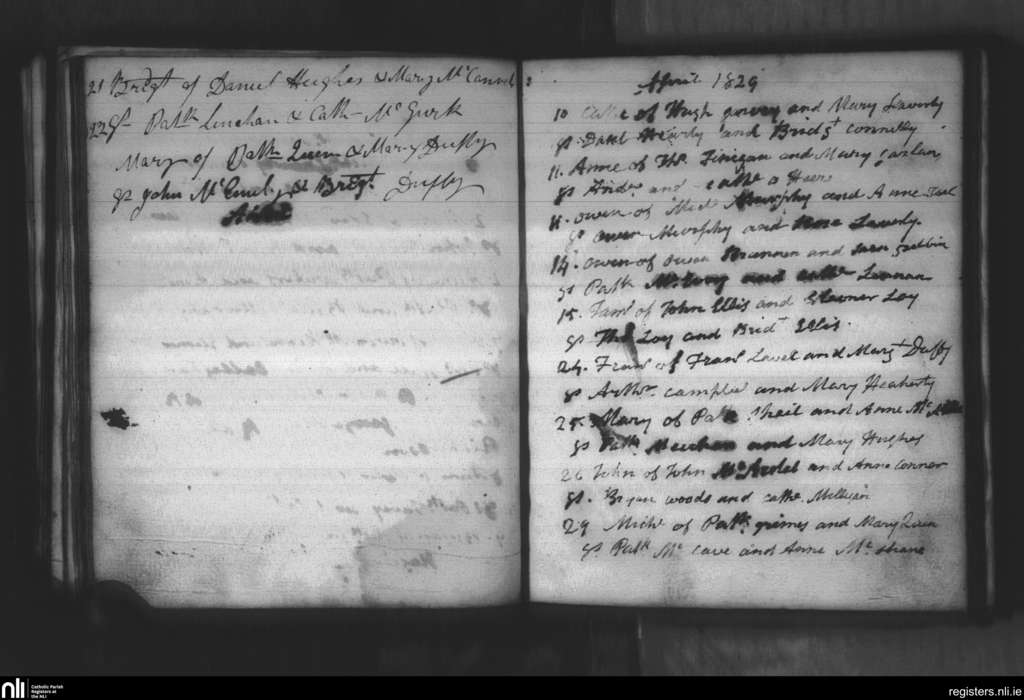 21 Bridgt of Daniel Hughes & Mary Mc Connel
22 Gs Patk Linehan & Cath Mc Gurk
Mary of Patk Quin & Mary Duffy
Gs John & Bridgt Duffy
April 1829
10 Cathe of Hugh and Mary Laverty
gs Danl and Bridgt Connelly
11. Anne of Ths Finigan and Mary Carlan
gs Andw and Cathe O Hare
11. Owen of Micl Murphy and Anne
gs Owen Murphy and Anne Laverty.
14. Owen of Owen Brannon and
gs Patk and Cathe Lennan
15. Jams of John Ellis and Eleanor Loy
gs Ths Loy and Bridt Ellis.
24. Frans of Frans Lavel and Margt Duffy
gs Arthr. Camplin and Mary Heaherty
25. Mary of Patk Sheil and Anne Mc
gs Patk and Mary Hughes
26 John of John Mc Ardel and Anne Connor
gs. Bryan Woods and Cathe Milligan
29 Miche of Patk Grimes and Mary Quin
gs Patk Mc Cave and Anne Mc Shane
nli Catholic Parish
Registers at
the NLI
registers.nli.ie